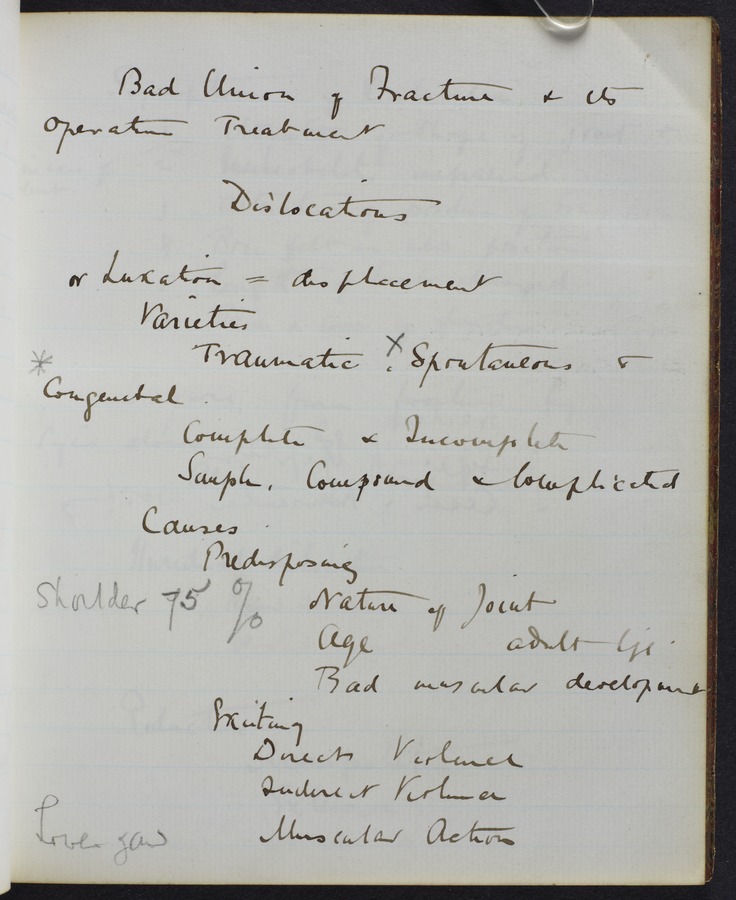 Bad Union of Fracture & its
operation Treatment
Dislocations
or Luxation = displacement
Varieties
Traumatic, x Spontaneous &
* Congenital.
Complete & Incomplete
Simple, Compound & Complicated
Causes.
Predisposing
Shoulder 75 % Nature of Joint
Age adult life.
Bad muscular development
Exciting
Direct Violence
Indirect Violence
Lower jaw Muscular Action